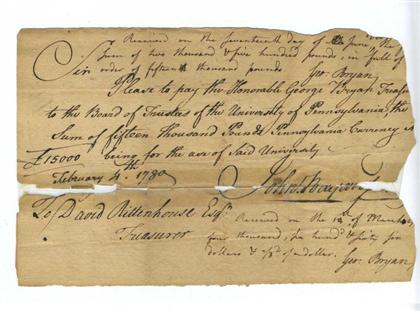 Received on the seventeenth day of June, the
Sum of two thousand & five hundred pounds, in full of
Sir order of fifteen thousand pounds
Geo: Bryan
Please to pay the Honorable George Bryan Treasr
to the Board of Trustees of the University of Pennsylvania, the
Sum of fifteen thousand Pounds Pennsylvania Currency
£15000 being for the use of Said University
February 4th 1780
To David Rittenhouse Esqr
Treasurer
Received on the 1st of March
four thousand, six hundd & sixty six
dollars & 2/3ds of a dollar. Geo: Bryan